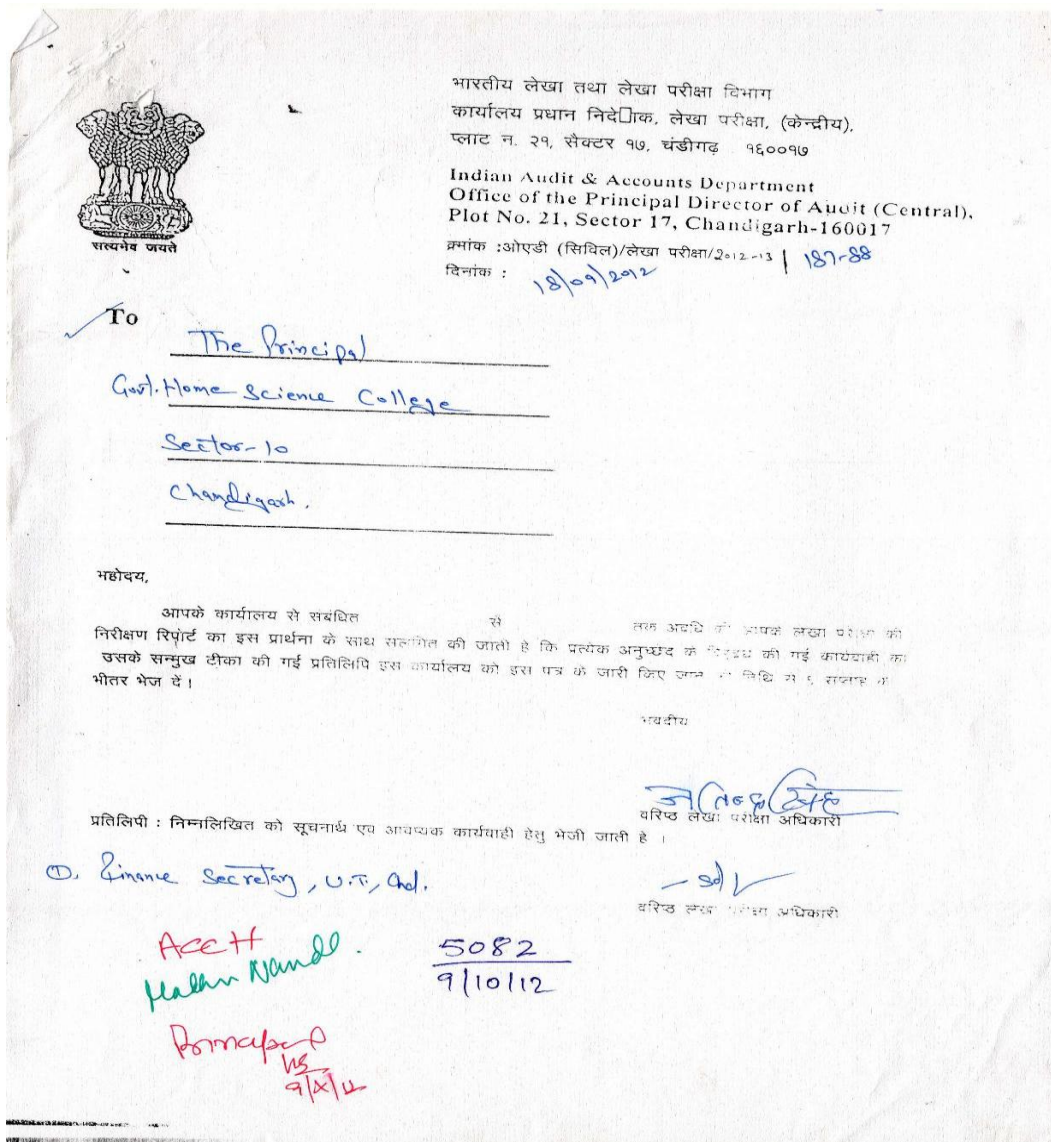 भारतीय लेखा तथा लेखा परीक्षा विभाग
कार्यालय प्रधान निदे□ाक, लेखा परीक्षा, (केन्द्रीय),
प्लाट न. २१, सैक्टर १७, चंडीगढ़ १६००१७
Indian Audit & Accounts Department
Office of the Principal Director of Audit (Central),
Plot No. 21, Sector 17, Chandigarh-160017
सत्यमेव जयते
क्र्मांक :ओएडी (सिविल)/लेखा परीक्षा/2012-13 | 187-88
दिनांक : 18/09/2012
To
The Principal
Govt. Home Science College
Sector-10
Chandigarh.
महोदय,
आपके कार्यालय से सबंधित से तक अवधि की आपके लेखा परीक्षा की
निरीक्षण रिपोर्ट का इस प्रार्थना के साथ सलंगित की जाती है कि प्रत्येक अनुच्छद के की गई कार्यवाही का
उसके सन्मुख टीका की गई प्रतिलिपि इस कार्यालय को इस पत्र के जारी किए जाने की तिथि से सप्ताह के
भीतर भेज दें।
भवदीय
वरिष्ठ लेखा परीक्षा अधिकारी
प्रतिलिपी : निम्नलिखित को सूचनार्थ एव आवष्यक कार्यवाही हेतु भेजी जाती है ।
①. Finance Secretary, U.T., Chd.
- sd/-
वरिष्ठ लेखा परीक्षा अधिकारी
Acctt
5082
9/10/12
Principal
9/X/12